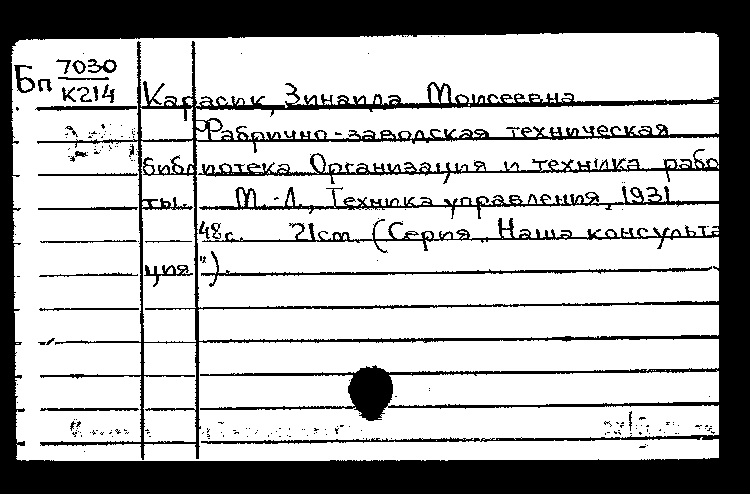 Бп 7030
К214
Карасик, Зинаида Моисеевна
Фабрично-заводская техническая
библиотека Организация и техника рабо
ты. М.-Л., Техника управления, 1931
48с. 21cm (Серия „Наша консульта
ция").